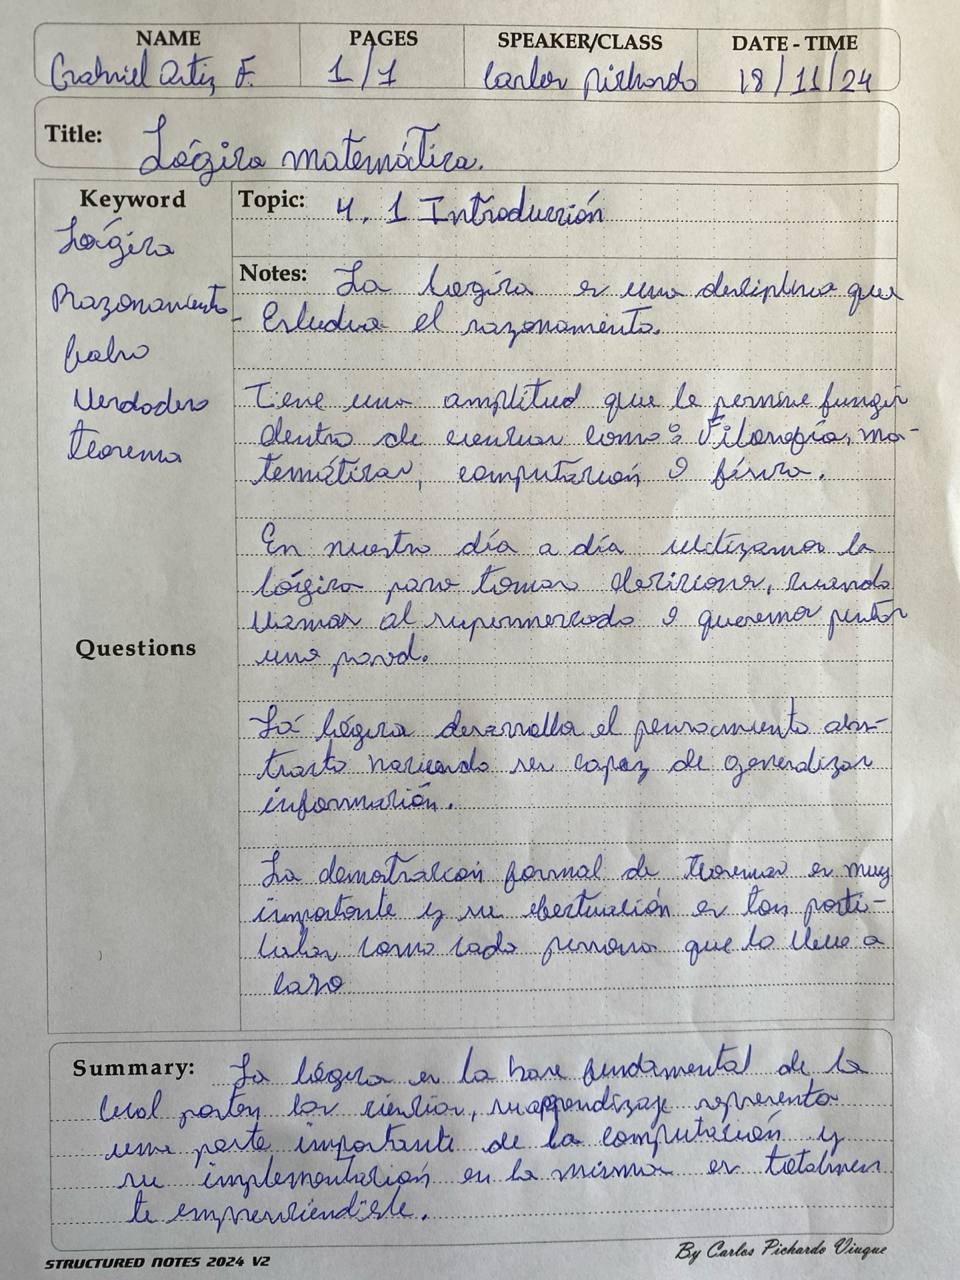 NAME PAGES SPEAKER/CLASS DATE - TIME
Gabriel Ortiz F. 1/1 Carlos Pichardo 18/11/24
Title: Lógica matemática.
Keyword
Lógica
Razonamiento
Falso
Verdadero
Teorema
Questions
Topic: 4.1 Introducción
Notes: La Logica es una disciplina que
Estudia el razonamento.
Tiene una amplitud que le permite fungir
dentro de ciencias como: Filosofía, ma-
temáticas, computación y física.
En nuestro día a día utilizamos la
lógica para tomar decisiones, cuando
vamos al supermercado y queremos pintar
una pared.
La lógica desarrolla el pensamiento abs-
tracto haciendo ser capaz de generalizar
información.
La demostracion formal de teoremas es muy
importante y su es tan parti-
cular como cada persona que lo lleve a
cabo
Summary: La lógica es la base fundamental de la
cual parten las ciencias, su aprendizaje representa
una parte importante de la computación y
su implementación en la misma es totalmen
te
STRUCTURED NOTES 2024 V2
By Carlos Pichardo Viuque